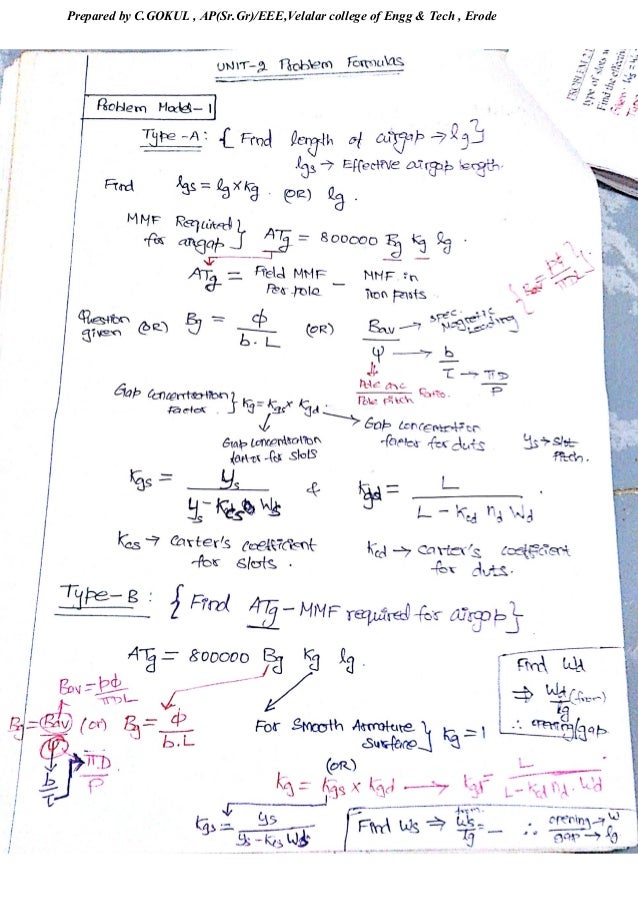 Prepared by C.GOKUL , AP(Sr.Gr)/EEE,Velalar college of Engg & Tech , Erode
UNIT-2 Problem Formulas
PROBLEM 2.2
type of slots
Find the effecti
Problem Model-1
Type-A: { Find length of airgap → lg }
lgs → Effective airgap length.
Find lgs = lg x kg. (OR) lg.
MMF Required for airgap } ATg = 800000 Bg kg lg.
ATg = Field MMF Per pole - MMF in iron parts.
{ Bav = Pϕ / πDL }
Question given (OR) Bg = ϕ / b.L (OR) Bav → Spec. Magnetic Loading
ψ → b / τ → πD / P
Pole arc / Pole pitch Ratio.
Gap Concentration Factor. } kg = kgs x kgd. → Gap concentration factor for ducts.
Gap concentration factor for slots
ys → slot pitch.
Kgs = ys / ys - Kcs Ws & Kgd = L / L - Kcd nd Wd
Kcs → Carter's coefficient for slots.
Kcd → Carter's coefficient for ducts.
Type-B: { Find ATg - MMF required for airgap }
ATg = 800000 Bg kg lg.
Find Wd
⇒ Wd / lg (from)
∴ opening/gap
Bav = pϕ / πDL
Bg = Bav / ψ (or) Bg = ϕ / b.L
b / τ → πD / P
For Smooth Armature Surface } Kg = 1
(OR)
Kg = Kgs x Kgd → kgd = L / L - Kcd nd. Wd
Kgs = ys / ys - kcs Ws
Find Ws ⇒ from Ws / lg = _ ∴ opening → W / gap → lg